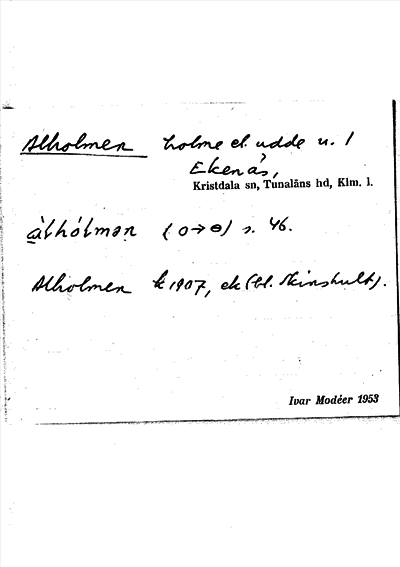 Alholmen holme el. udde u. 1
Ekenäs,
Kristdala sn, Tunaläns hd, Klm. l.
àlhólmən (o→ɵ) s. 46.
Alholmen k 1907, ek (bl. Skinshult).
Ivar Modéer 1953